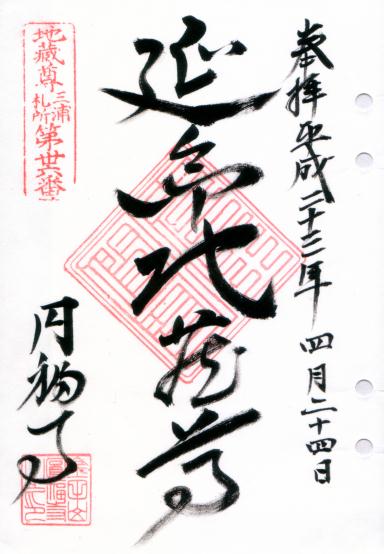 奉拝 平成二十三年 四月二十四日
延命地蔵尊
地蔵尊
三浦札所
第丗六番
円福寺